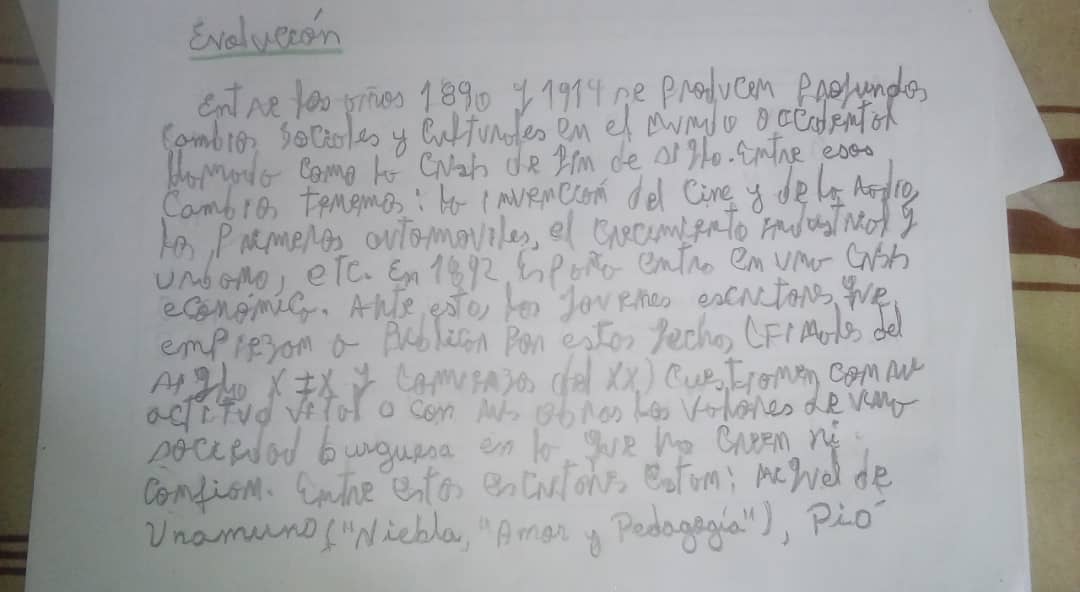 Evolución
Entre los años 1890 y 1914 se producen profundos
cambios sociales y culturales en el mundo occidental
llamado como la crisis de fin de siglo. Entre esos
cambios tenemos: la invención del cine y de la radio,
los primeros automoviles, el crecimiento industrial y
urbano, etc. En 1892 España entra en una crisis
económica. Ante esto, los jovenes escritores que
empiezan a publicar por estas fechas (finales del
siglo XIX y comienzos del XX) cuestionen con su
actitud vital o con sus obras los valores de una
sociedad burguesa en la que no creen ni
confian. Entre estos escritores estan: Miguel de
Unamuno ("Niebla, "Amor y Pedagogía"), Pío